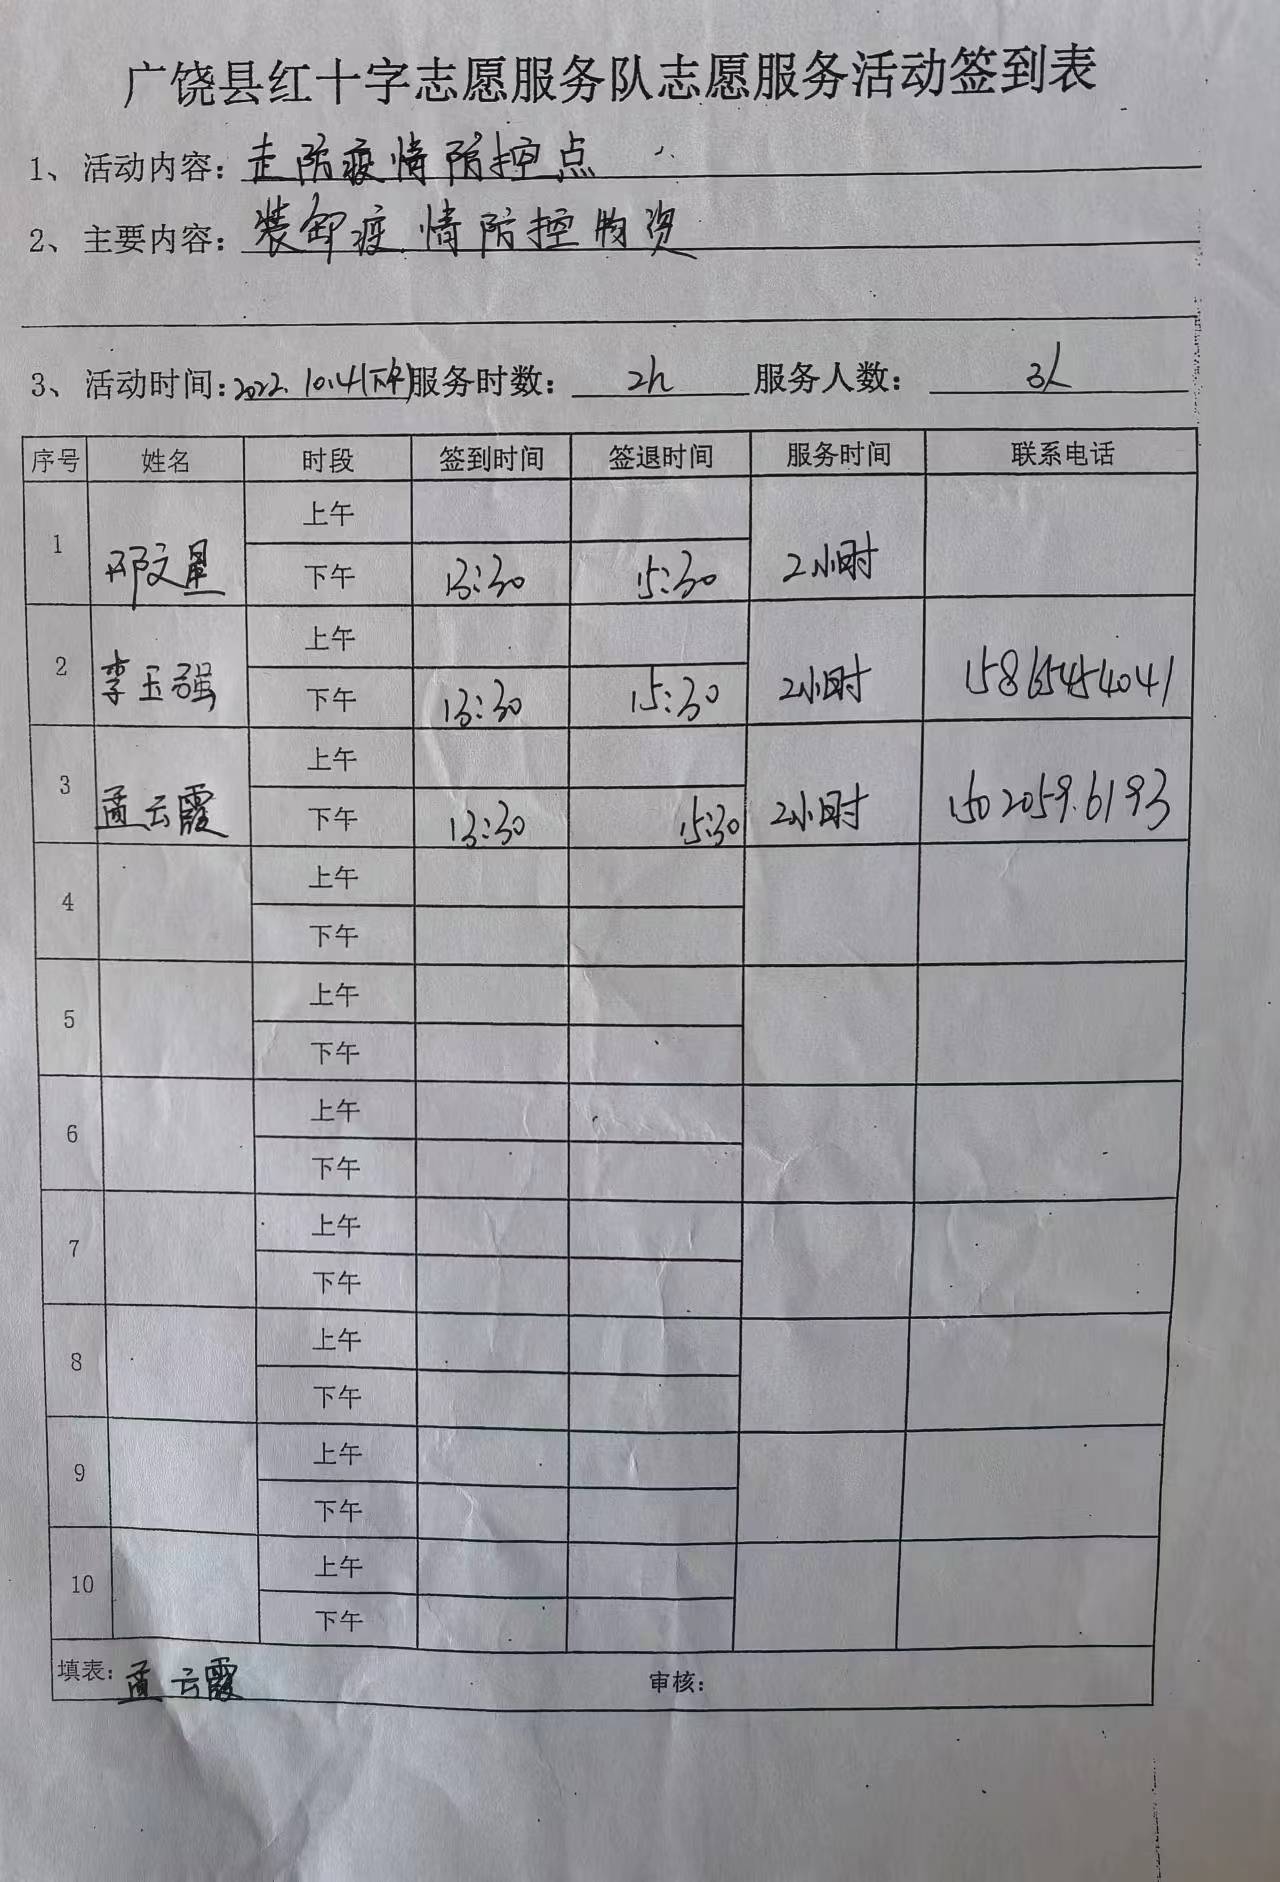 广饶县红十字志愿服务队志愿服务活动签到表
1、活动内容：走防疫情防控点
2、主要内容：装卸疫情防控物资
3、活动时间：2022.10.4(下午)服务时数：2h 服务人数：3人
序号 姓名 时段 签到时间 签退时间 服务时间 联系电话
上午
1 邓文星 下午 13:30 15:30 2小时
上午
2 李玉强 下午 13:30 15:30 2小时 15865454041
上午
3 孟云霞 下午 13:30 15:30 2小时 15020596193
上午
4
下午
上午
5
下午
上午
6
下午
上午
7
下午
上午
8
下午
上午
9
下午
上午
10
下午
填表：孟云霞 审核：